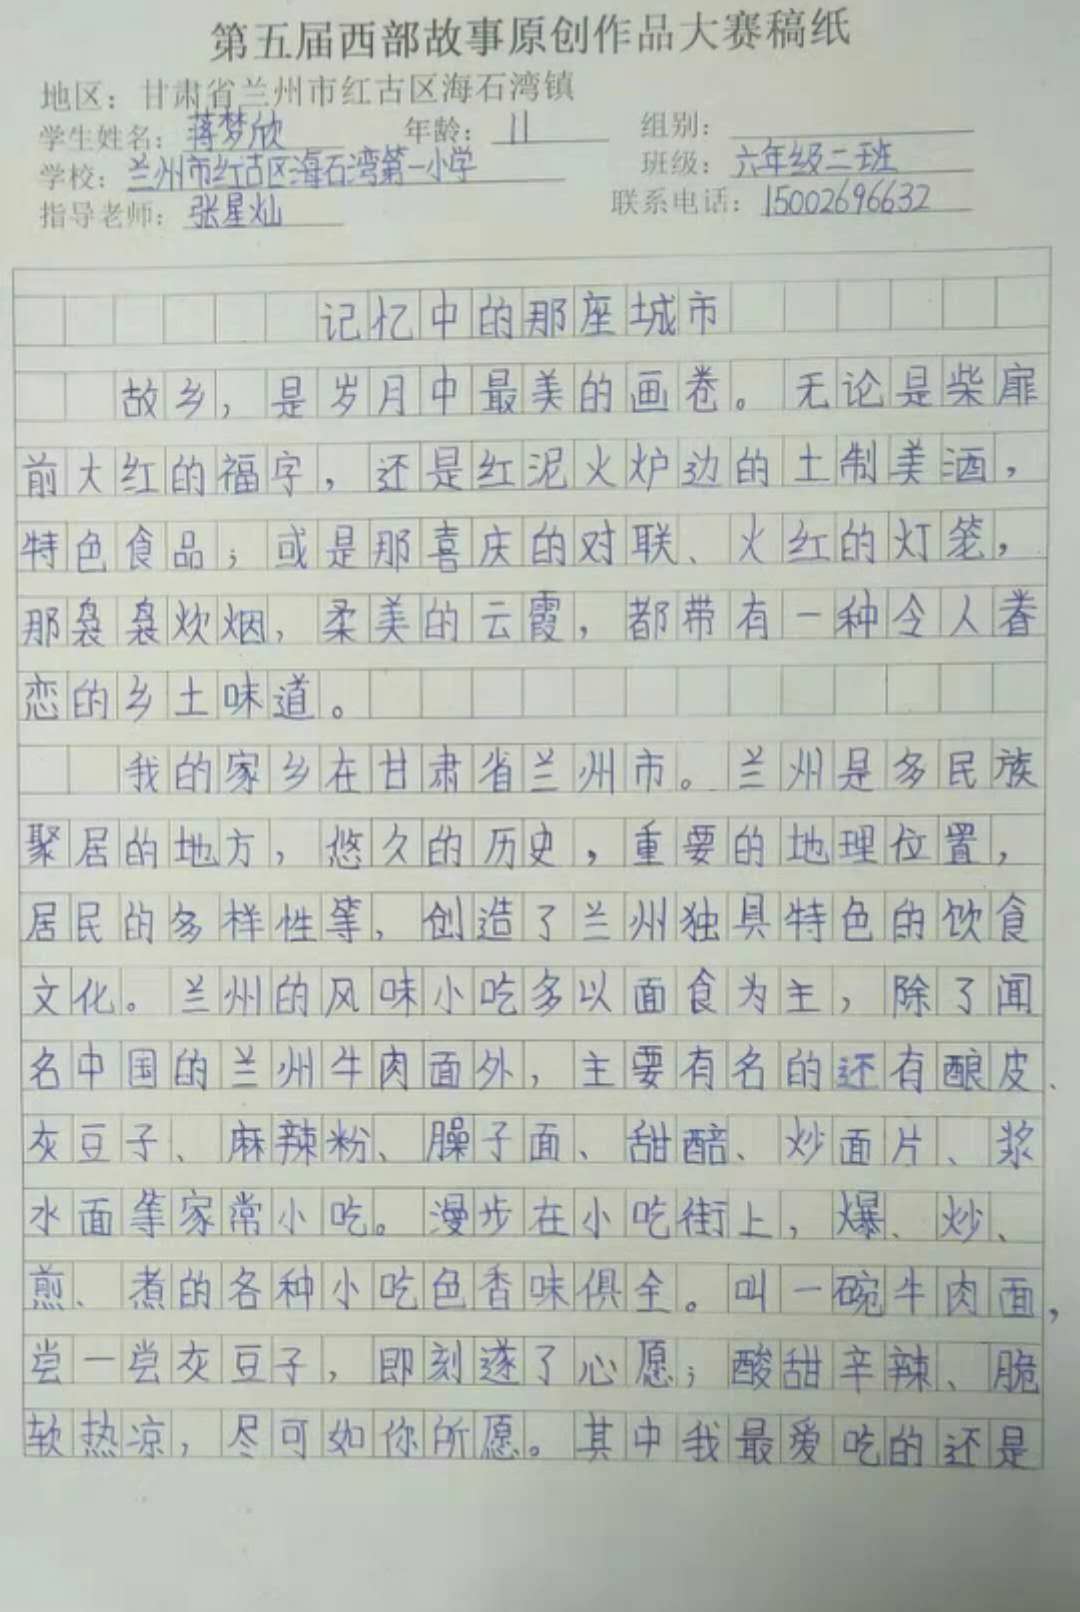 第五届西部故事原创作品大赛稿纸
地区：甘肃省兰州市红古区海石湾镇
学生姓名：蒋梦欣 年龄：11 组别：
学校：兰州市红古区海石湾第一小学 班级：六年级二班
指导老师：张星灿 联系电话：15002696632
记忆中的那座城市
故乡，是岁月中最美的画卷。无论是柴扉
前大红的福字，还是红泥火炉边的土制美酒，
特色食品；或是那喜庆的对联、火红的灯笼，
那袅袅炊烟，柔美的云霞，都带有一种令人眷
恋的乡土味道。
我的家乡在甘肃省兰州市。兰州是多民族
聚居的地方，悠久的历史，重要的地理位置，
居民的多样性等，创造了兰州独具特色的饮食
文化。兰州的风味小吃多以面食为主，除了闻
名中国的兰州牛肉面外，主要有名的还有酿皮、
灰豆子、麻辣粉、臊子面、甜醅、炒面片、浆
水面等家常小吃。漫步在小吃街上，爆、炒、
煎、煮的各种小吃色香味俱全。叫一碗牛肉面，
尝一尝灰豆子，即刻遂了心愿；酸甜辛辣、脆
软热凉，尽可如你所愿。其中我最爱吃的还是